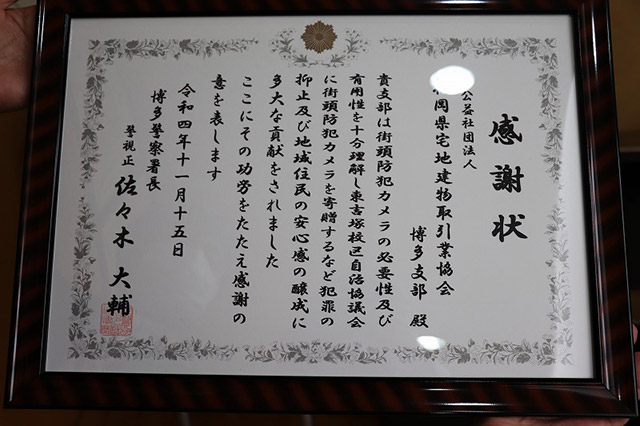 感謝状
公益社団法人
岡県宅地建物取引業協会
博多支部 殿
貴支部は街頭防犯カメラの必要性及び
有用性を十分理解し東吉塚校区自治協議会
に街頭防犯カメラを寄贈するなど犯罪の
抑止及び地域住民の安心感の醸成に
多大な貢献をされました
ここにその功労をたたえ感謝の
意を表します
令和四年十一月十五日
博多警察署長
警視正 佐々木 大輔